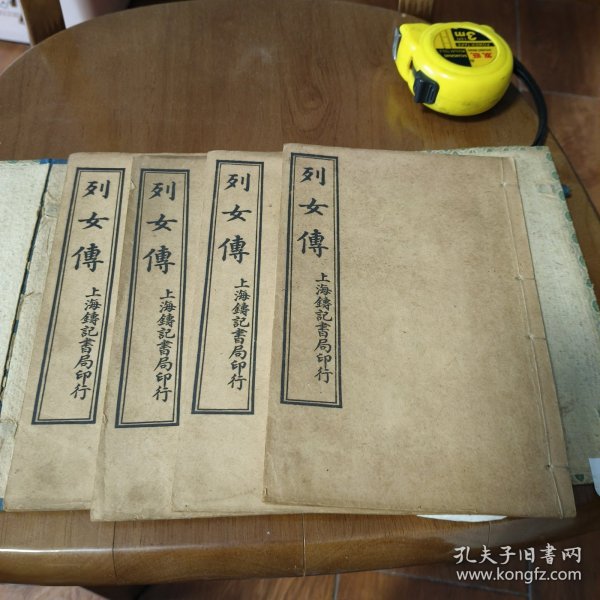 列女傳
上海鑄記書局印行
列女傳
上海鑄記書局印行
列女傳
上海鑄記書局印行
列女傳
上海鑄記書局印行
3m
孔夫子旧书网
www.kongfz.com